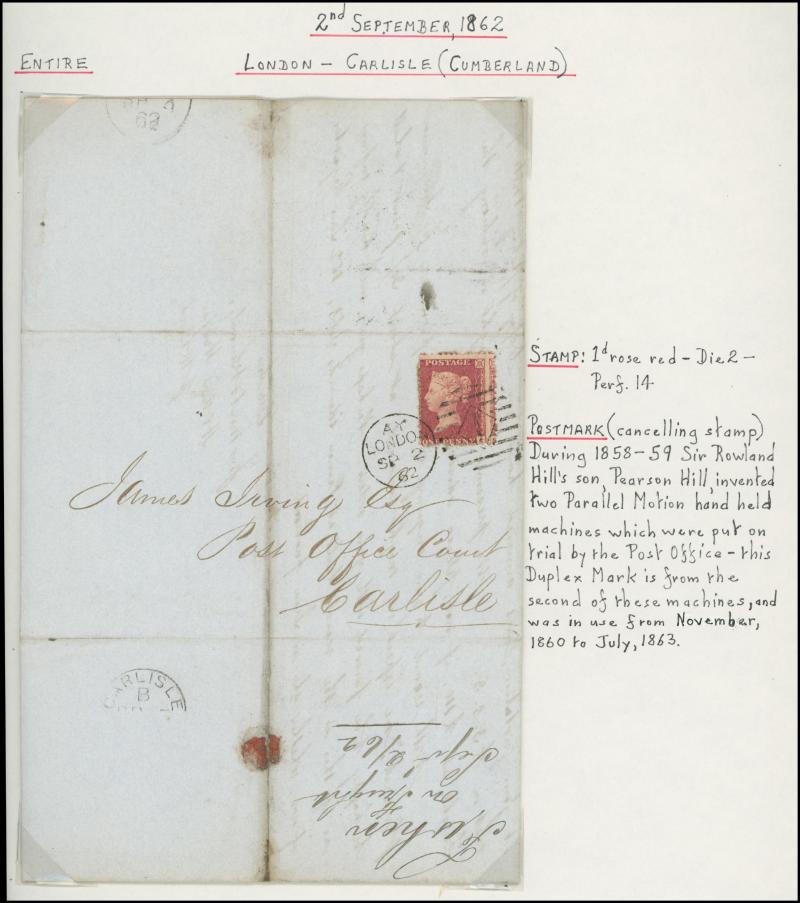 2nd SEPTEMBER, 1862
ENTIRE
LONDON – CARLISLE (CUMBERLAND)
62
POSTAGE
ONE PENNY
AY
LONDON
SP 2
62
STAMP: 1d rose red – Die 2 –
Perf. 14
POSTMARK (cancelling stamp)
During 1858–59 Sir Rowland
Hill's son, Pearson Hill, invented
two Parallel Motion hand held
machines which were put on
trial by the Post Office – this
Duplex Mark is from the
second of these machines, and
was in use from November,
1860 to July, 1863.
James Irving Esq
Post Office Court
Carlisle
CARLISLE
B
on Freight
Sept 2/62